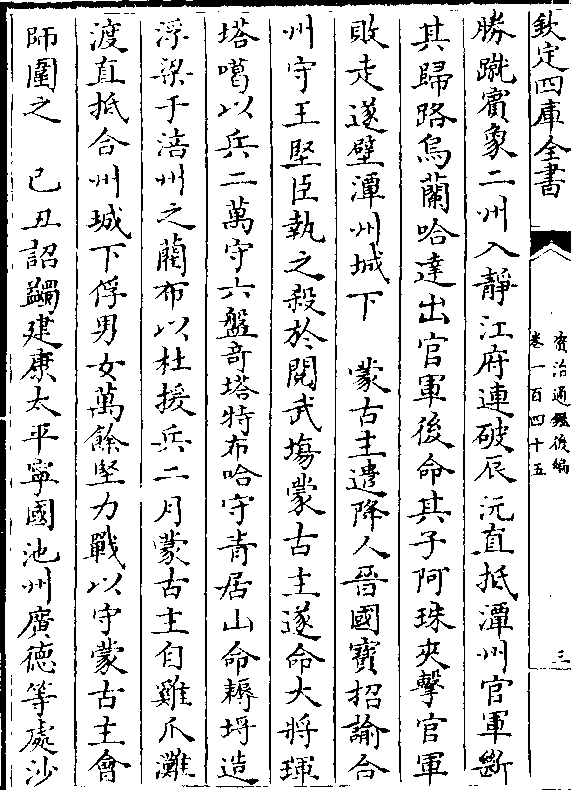 欽定四庫全書
資治通鑑後編
卷一百四十五
三
勝蹴賓象二州入靜江府連破辰沅直抵潭州官軍斷
其歸路烏蘭哈達出官軍後命其子阿珠夾擊官軍
敗走遂壁潭州城下　蒙古主遣降人晉國寶招諭合
州守王堅臣執之殺於閱武塲蒙古主遂命大將琿
塔噶以兵二萬守六盤竒塔特布哈守青居山命耨埒造
浮梁于涪州之藺布以杜援兵二月蒙古主自雞爪灘
渡直抵合州城下俘男女萬餘堅力戰以守蒙古主會
師圍之　己丑詔蠲建康太平寧國池州廣德等處沙